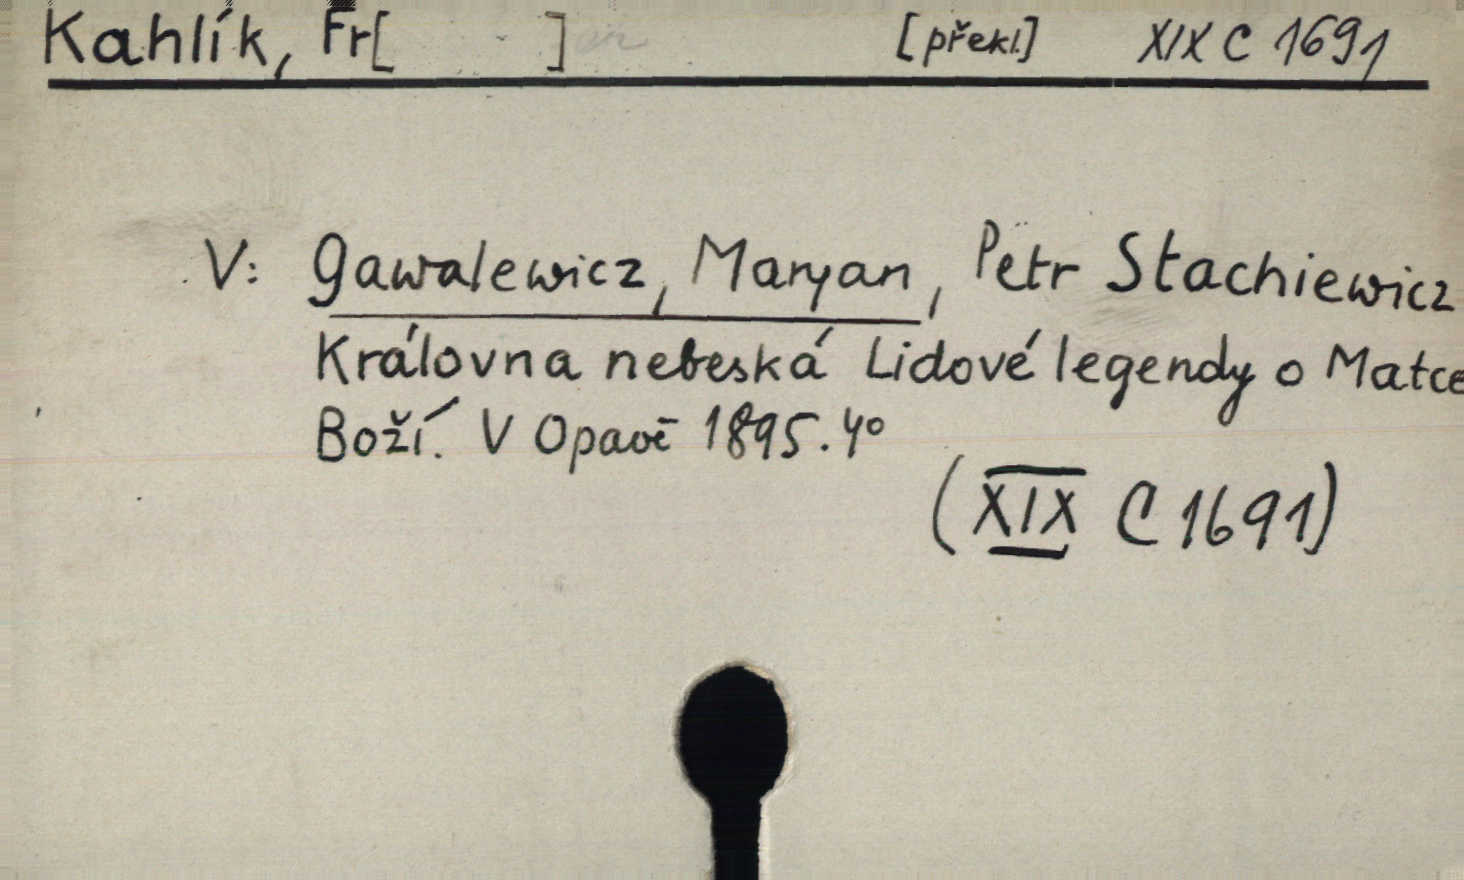 Kahlík, Fr[ ] [překl.] XIX C 1691
V: Gawalewicz, Maryan, Petr Stachiewicz
Královna nebeská Lidové legendy o Matce
Boží. V Opavě 1895. 4°
(XIX C 1691)